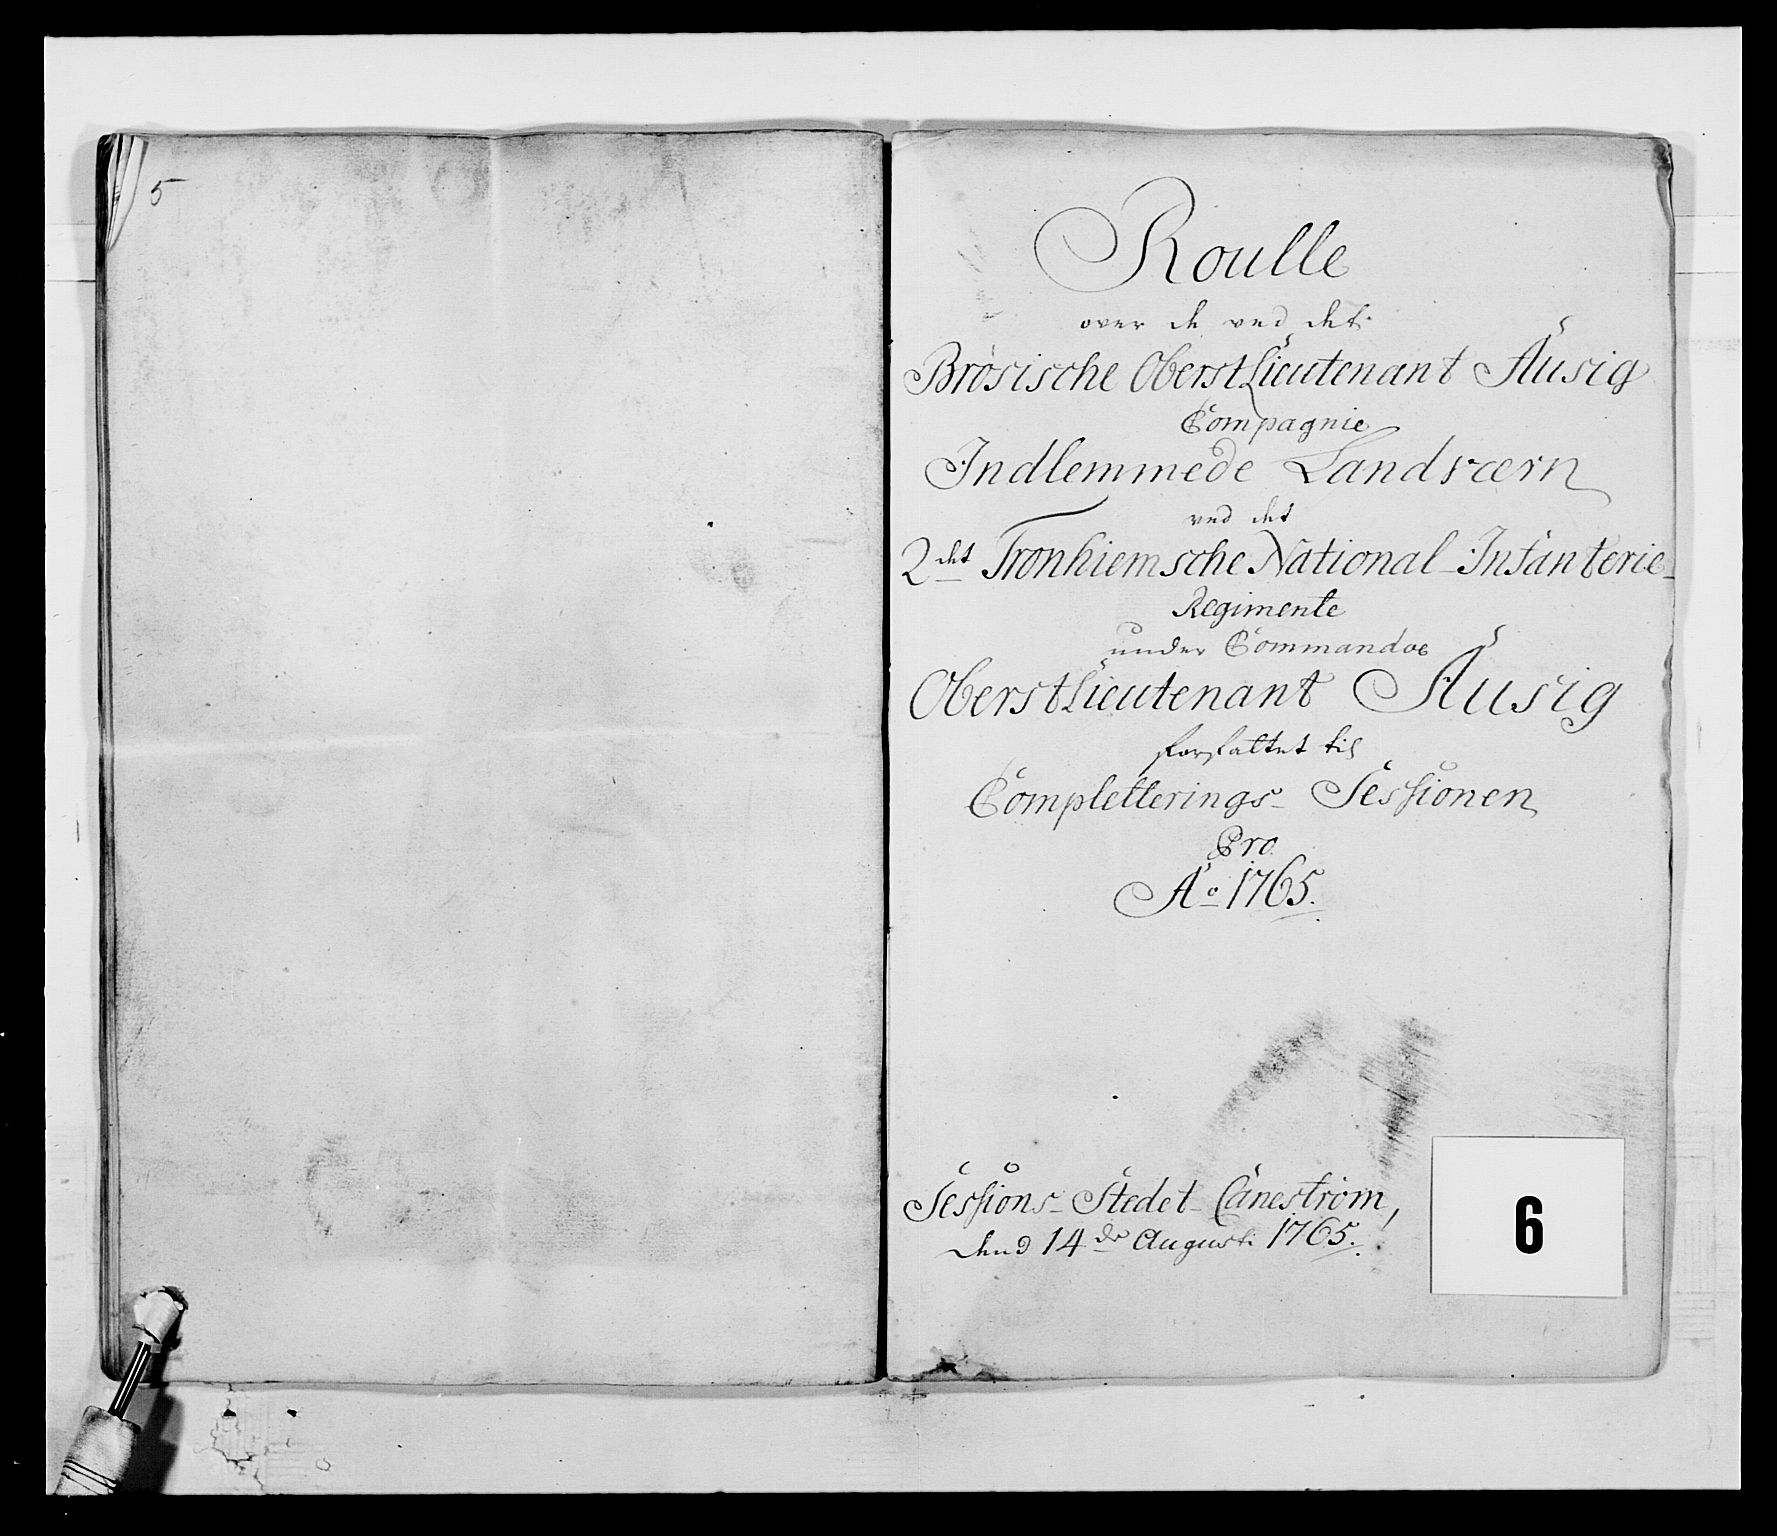 5
Roulle
over de ved det
Brøsische Oberst Lieutenant Ausig
Compagnie
Indlemmede Landværn
ved det
2det Tronhiemsche National-Infanterie-
Regimente
under Commandoe
Oberst Lieutenant Ausig
forfattet til
Completterings- Sessionen
Pro
Ao 1765.
Sessions- Stedet Canestrøm,
dend 14de Augusti 1765.
6